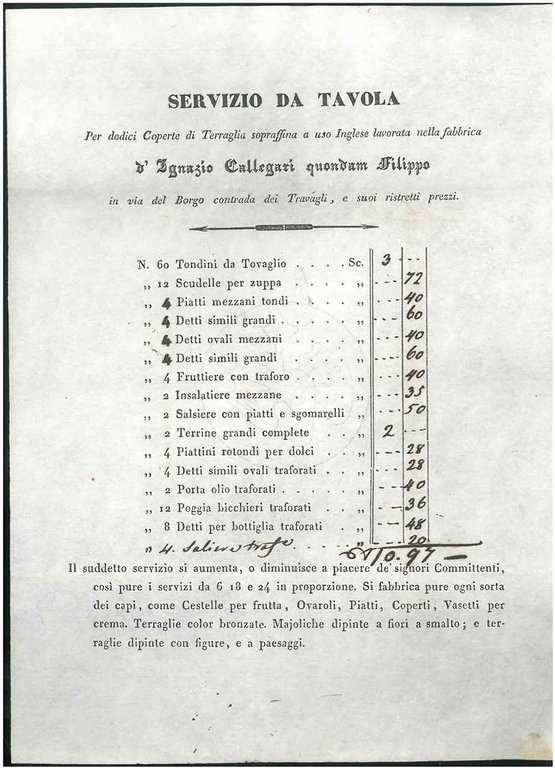 SERVIZIO DA TAVOLA
Per dodici Coperte di Terraglia sopraffina a uso Inglese lavorata nella fabbrica
d' Ignazio Callegari quondam Filippo
in via del Borgo contrada dei Travagli, e suoi ristretti prezzi.
N. 60 Tondini da Tovaglio . . . . Sc. 3 ---
„ 12 Scudelle per zuppa . . . . . „ --- 72
„ 4 Piatti mezzani tondi . . . . . „ --- 40
„ 4 Detti simili grandi . . . . . . „ --- 60
„ 4 Detti ovali mezzani . . . . . „ --- 40
„ 4 Detti simili grandi . . . . . „ --- 60
„ 4 Fruttiere con traforo . . . . . „ --- 40
„ 2 Insalatiere mezzane . . . . . „ --- 35
„ 2 Salsiere con piatti e sgomarelli „ --- 50
„ 2 Terrine grandi complete . . . „ 2 ---
„ 4 Piattini rotondi per dolci . . . „ --- 28
„ 4 Detti simili ovali traforati . . . „ --- 28
„ 2 Porta olio traforati . . . . . „ --- 40
„ 12 Poggia bicchieri traforati . . „ --- 36
„ 8 Detti per bottiglia traforati . „ --- 48
„ 4. Saliere . . . . „ --- 20
10.97 —
Il suddetto servizio si aumenta, o diminuisce a piacere de' signori Committenti,
così pure i servizi da 6 18 e 24 in proporzione. Si fabbrica pure ogni sorta
dei capi, come Cestelle per frutta, Ovaroli, Piatti, Coperti, Vasetti per
crema. Terraglie color bronzate. Majoliche dipinte a fiori a smalto; e ter-
raglie dipinte con figure, e a paesaggi.